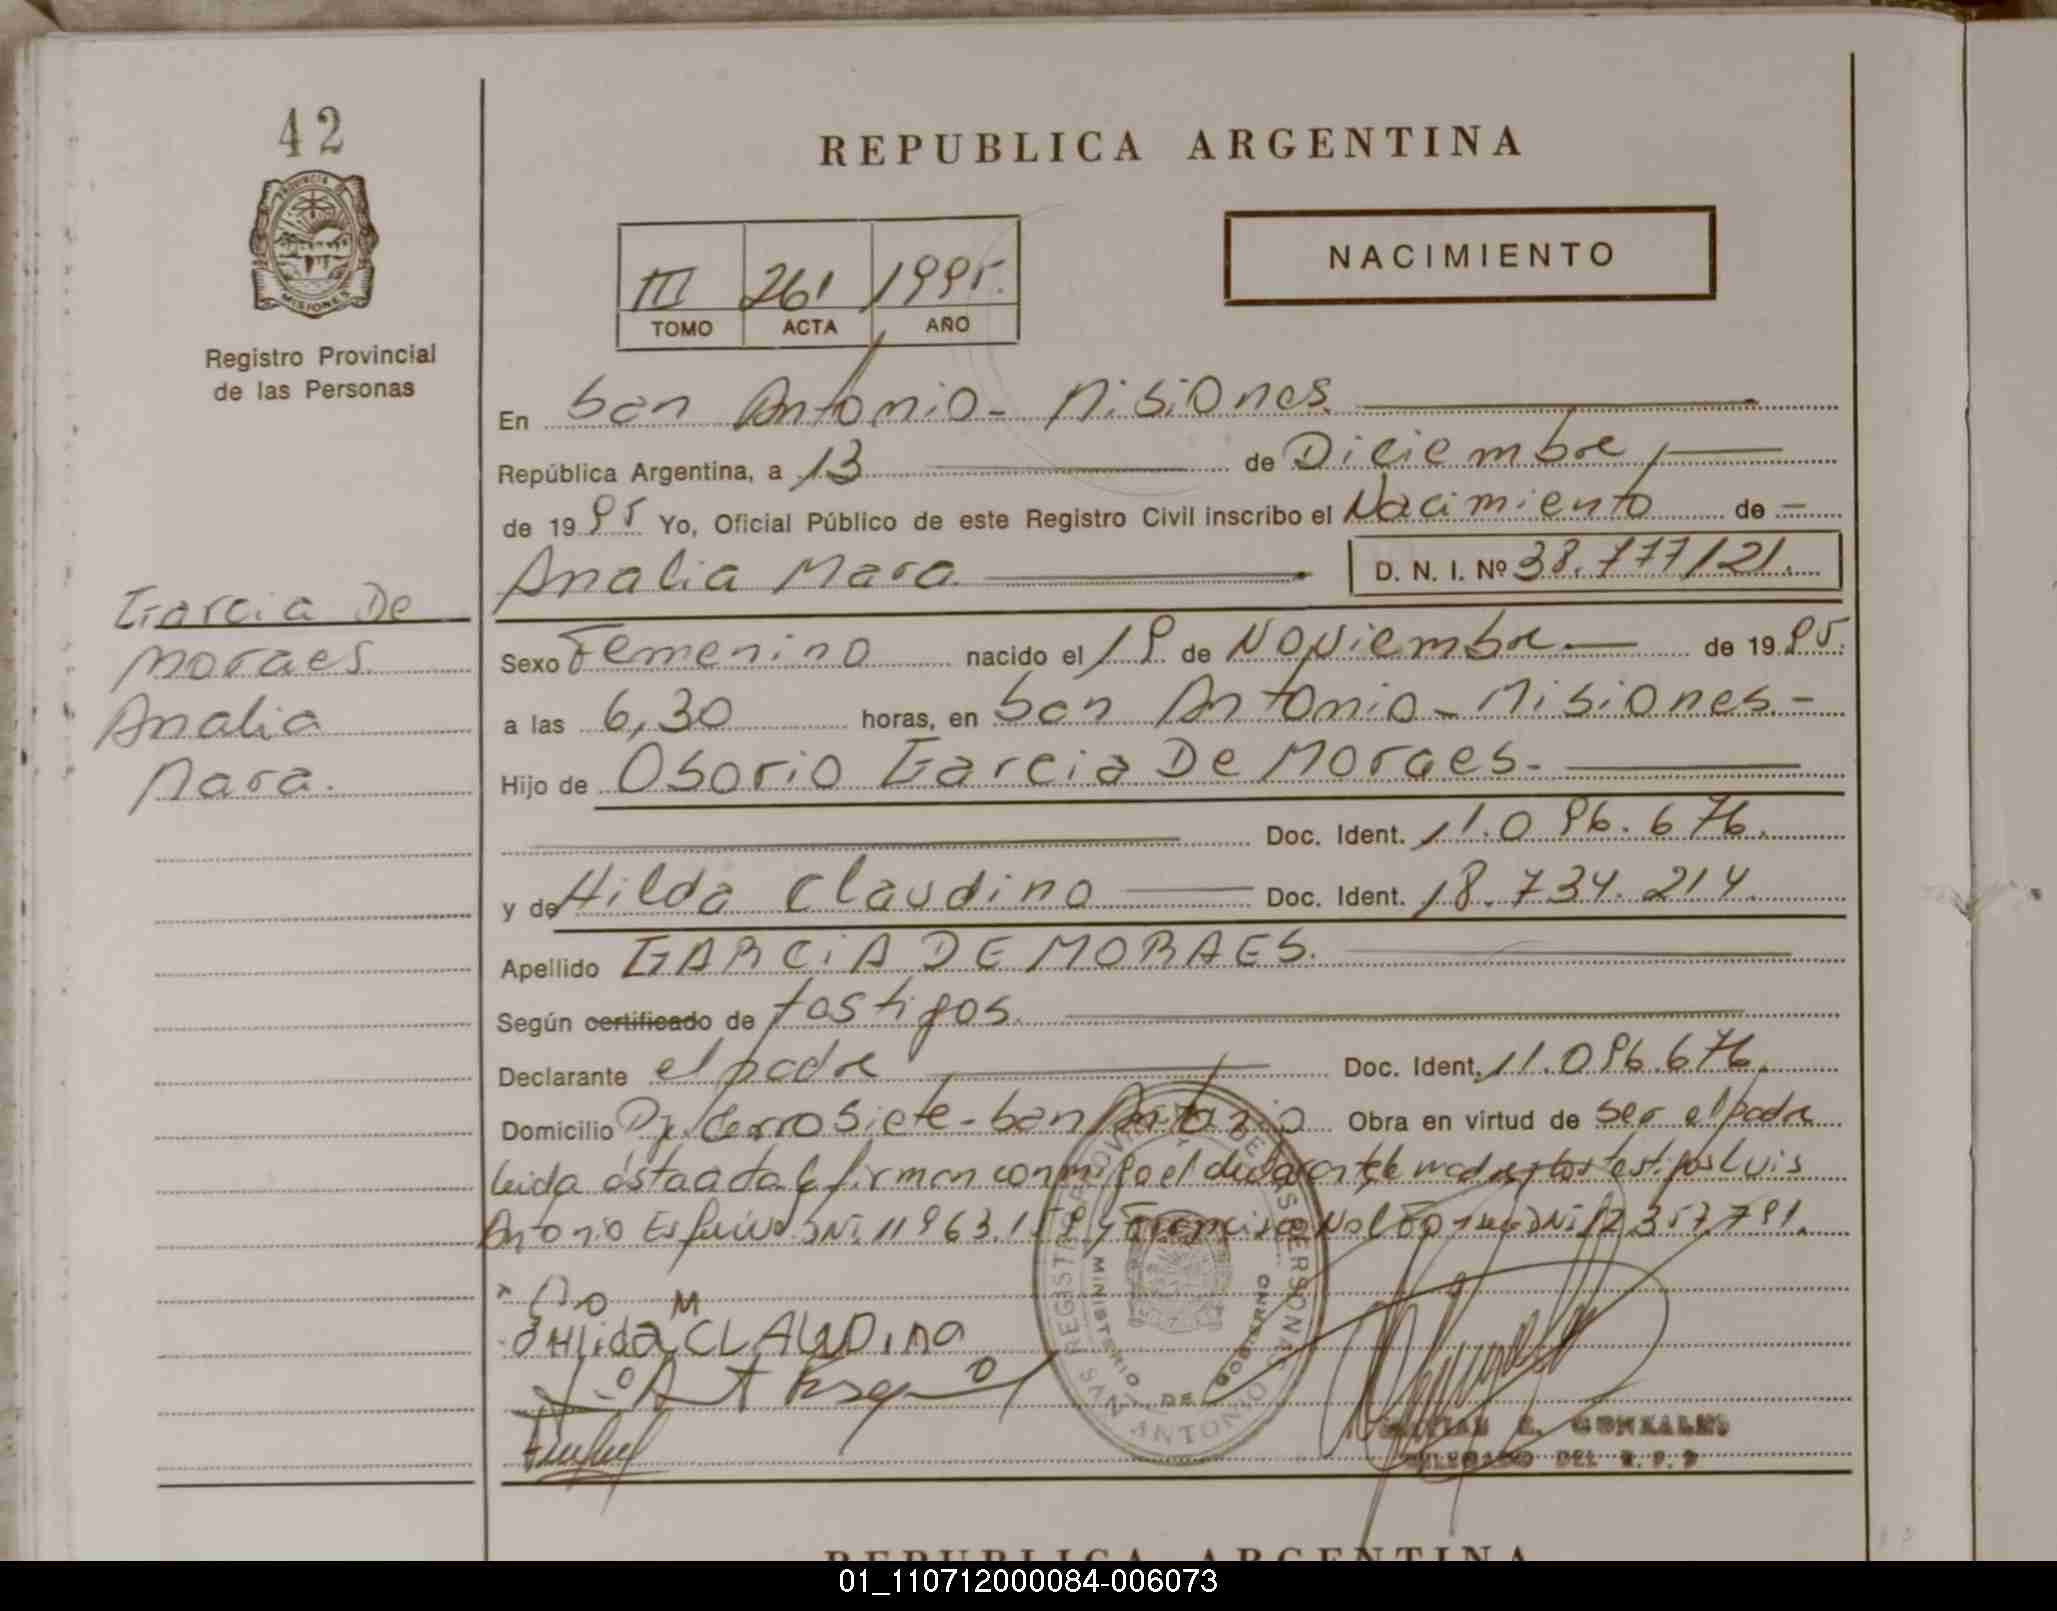 42
PROVINCIA DE
MISIONES
Registro Provincial
de las Personas
REPUBLICA ARGENTINA
NACIMIENTO
III 261 1995.
TOMO ACTA AÑO
En San Antonio - Misiones.
República Argentina, a 13 de Diciembre
de 1995 Yo, Oficial Público de este Registro Civil inscribo el Nacimiento de -
Analia Mara D. N. I. Nº 38.777121.
Garcia De
Moraes
Analia
Mara.
Sexo Femenino nacido el 19 de Noviembre de 1995.
a las 6,30 horas, en San Antonio - Misiones. -
Hijo de Osorio Garcia De Moraes.
Doc. Ident. 11.096.676.
y de Hilda Claudino Doc. Ident. 18.734.214.
Apellido GARCiA DE MORAES.
Según certificado de testigos.
Declarante el padre Doc. Ident. 11.096.676.
Domicilio Pje. Cerro Siete - San Antonio Obra en virtud de ser el padre
leida ésta acta firman conmigo el declarante testigos Luis
Antonio DNI. 11963. y Francisco DNI 12357791.
M
Hlida CLAUDiNA
REGISTRO PROVINCIAL DE LAS PERSONAS
MINISTERIO DE GOBIERNO
SAN ANTONIO
E. GONZALES
DELEGADO DEL R. P. P
REPUBLICA ARGENTINA
01_110712000084-006073